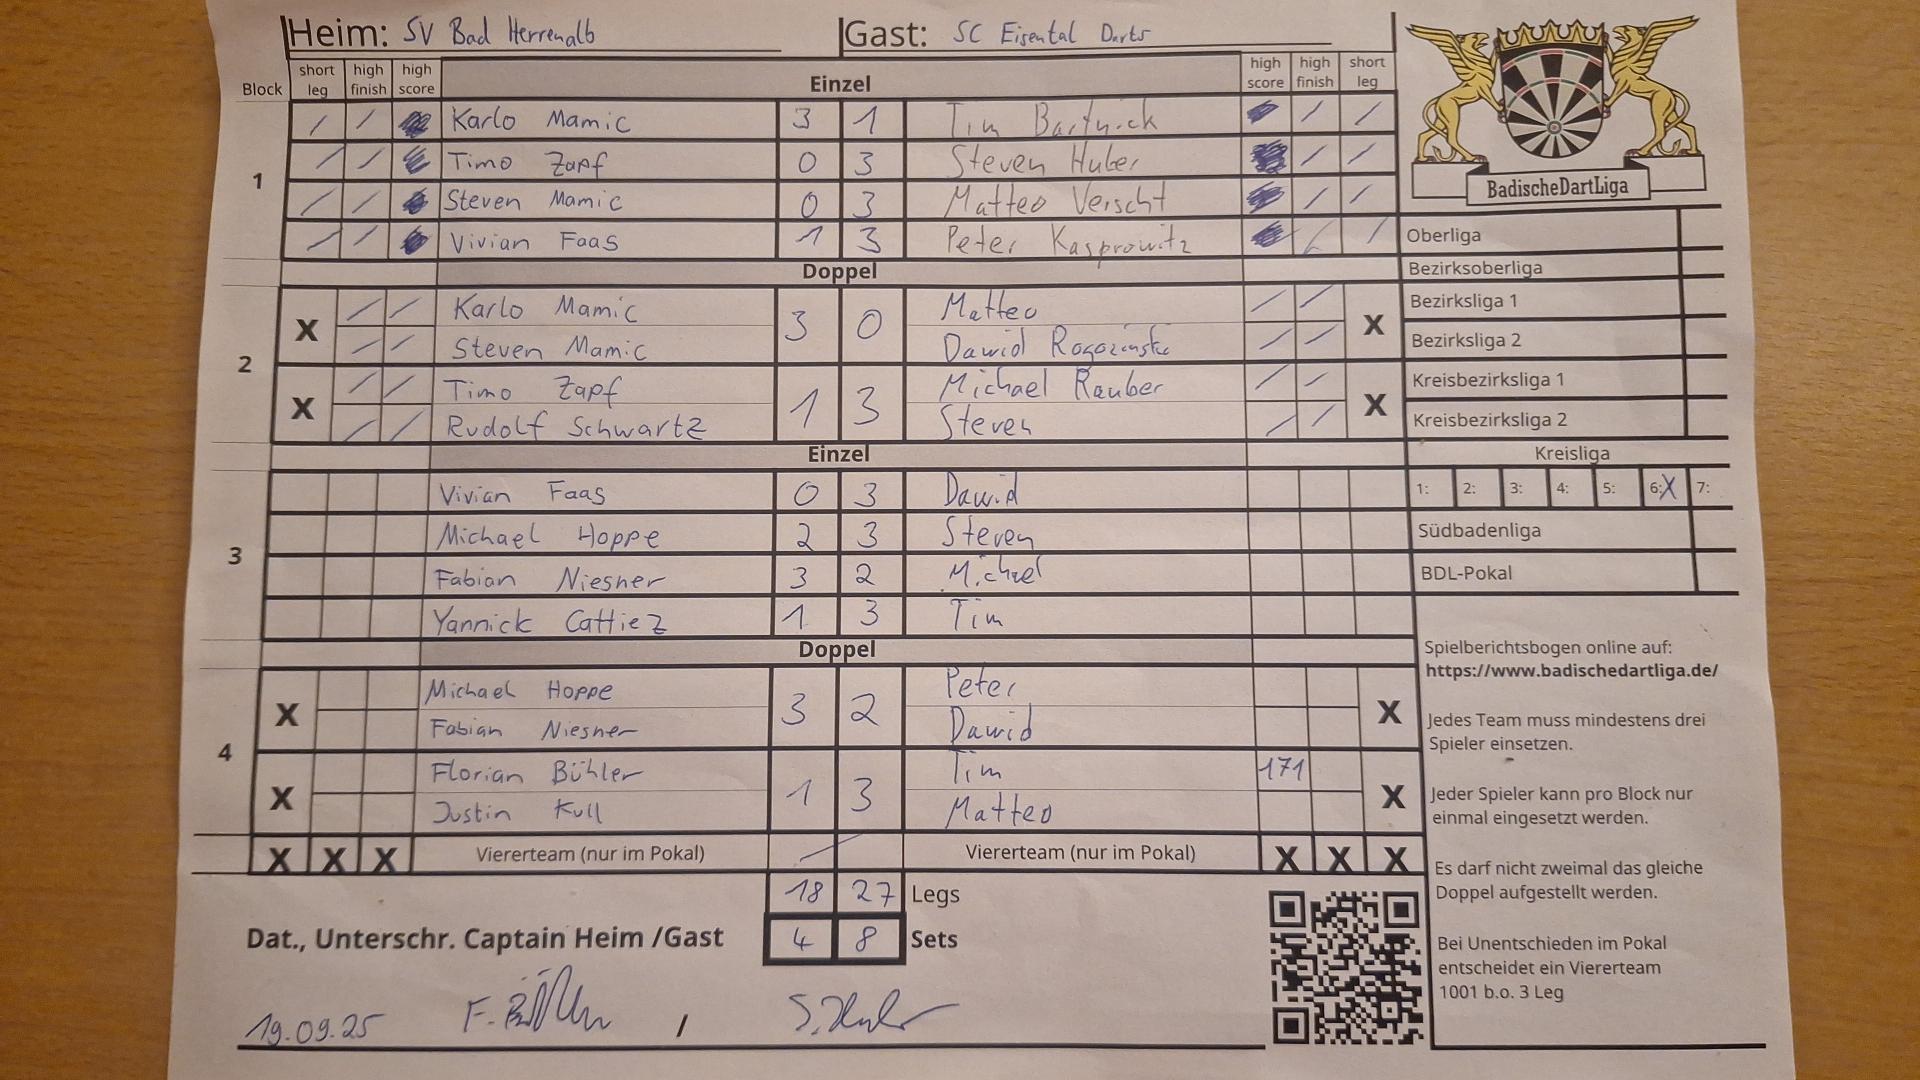 Heim: SV Bad Herrenalb Gast: SC Eisental Darts
Block short leg high finish high score Einzel high score high finish short leg
1
/ / Karlo Mamic 3 1 Tim Bartnick / /
/ / Timo Zapf 0 3 Steven Huber / /
/ / Steven Mamic 0 3 Matteo Verscht / /
/ / Vivian Faas 1 3 Peter Kasprowitz / /
Doppel
2
X / / Karlo Mamic 3 0 Matteo / / X
/ / Steven Mamic Dawid / /
X / / Timo Zapf 1 3 Michael Rauber / / X
/ / Rudolf Schwartz Steven / /
Einzel
3
Vivian Faas 0 3 Dawid
Michael Hoppe 2 3 Steven
Fabian Niesner 3 2 Michael
Yannick Cattiez 1 3 Tim
Doppel
4
X Michael Hoppe 3 2 Peter X
Fabian Niesner Dawid
X Florian Bühler 1 3 Tim 171 X
Justin Kull Matteo
X X X Viererteam (nur im Pokal) / Viererteam (nur im Pokal) X X X
18 27 Legs
Dat., Unterschr. Captain Heim /Gast 4 8 Sets
19.09.25 /
BadischeDartLiga
Oberliga
Bezirksoberliga
Bezirksliga 1
Bezirksliga 2
Kreisbezirksliga 1
Kreisbezirksliga 2
Kreisliga
1: 2: 3: 4: 5: 6: X 7:
Südbadenliga
BDL-Pokal
Spielberichtsbogen online auf:
https://www.badischedartliga.de/
Jedes Team muss mindestens drei
Spieler einsetzen.
Jeder Spieler kann pro Block nur
einmal eingesetzt werden.
Es darf nicht zweimal das gleiche
Doppel aufgestellt werden.
Bei Unentschieden im Pokal
entscheidet ein Viererteam
1001 b.o. 3 Leg